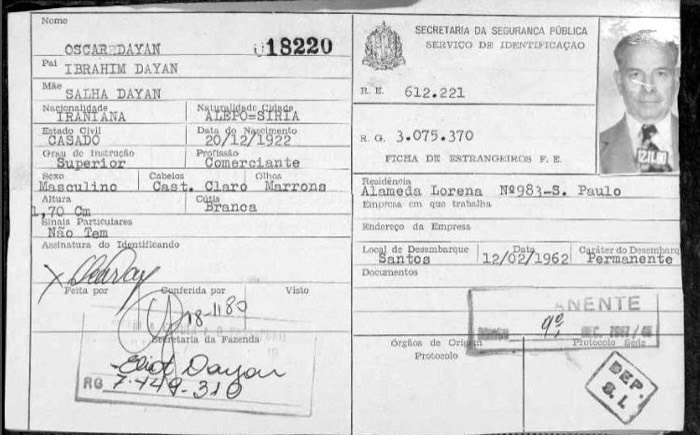 Nome
OSCAR DAYAN 018220
Pai
IBRAHIM DAYAN
Mãe
SALHA DAYAN
Nacionalidade Naturalidade Cidade
IRANIANA ALEPO=SIRIA
Estado Civil Data do Nascimento
CASADO 20/12/1922
Grau de Instrução Profissão
Superior Comerciante
Sexo Cabelos Olhos
Masculino Cast. Claro Marrons
Altura Cútis
1,70 Cm Branca
Sinais Particulares
Não Tem
Assinatura do Identificando
Feita por Conferida por Visto
18-11-80
Secretaria da Fazenda
Eliot Dayan
RG 7.449-310
SECRETARIA DA SEGURANÇA PÚBLICA
SERVIÇO DE IDENTIFICAÇÃO
R. E. 612.221
R. G. 3.075.370
FICHA DE ESTRANGEIROS F. E.
12.11.80
Residência
Alameda Lorena Nº983-S. Paulo
Empresa em que trabalha
Endereço da Empresa
Local de Desembarque Data Caráter do Desembarq
Santos 12/02/1962 Permanente
Documentos
ANENTE
9º
Órgãos de Origem Protocolo Série
Protocolo
DEP.
S. I.